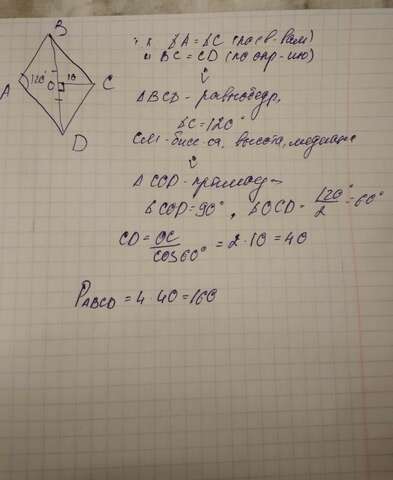 B
A 120° O 10 C
D
т. к ∠A = ∠C (по св-вам)
и BC = CD (по опр-ию)
⇓
ΔBCD - равнобедр,
∠C = 120°
CM - бисс-са, высота, медиана
⇓
ΔCOD - прямоуг-
∠COD = 90°, ∠OCD = 120°/2 = 60°
CD = OC/cos60° = 2 · 10 = 40
P ABCD = 4 · 40 = 160